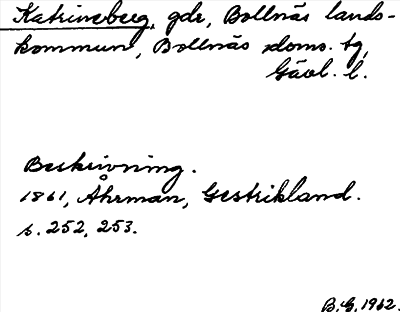 Katrineberg, gdr, Bollnäs lands-
kommun, Bollnäs doms. tg,
Gävl. l.
Beskrivning.
1861, Åhrman, Gestrikland.
s. 252, 253.
B.G. 1962.